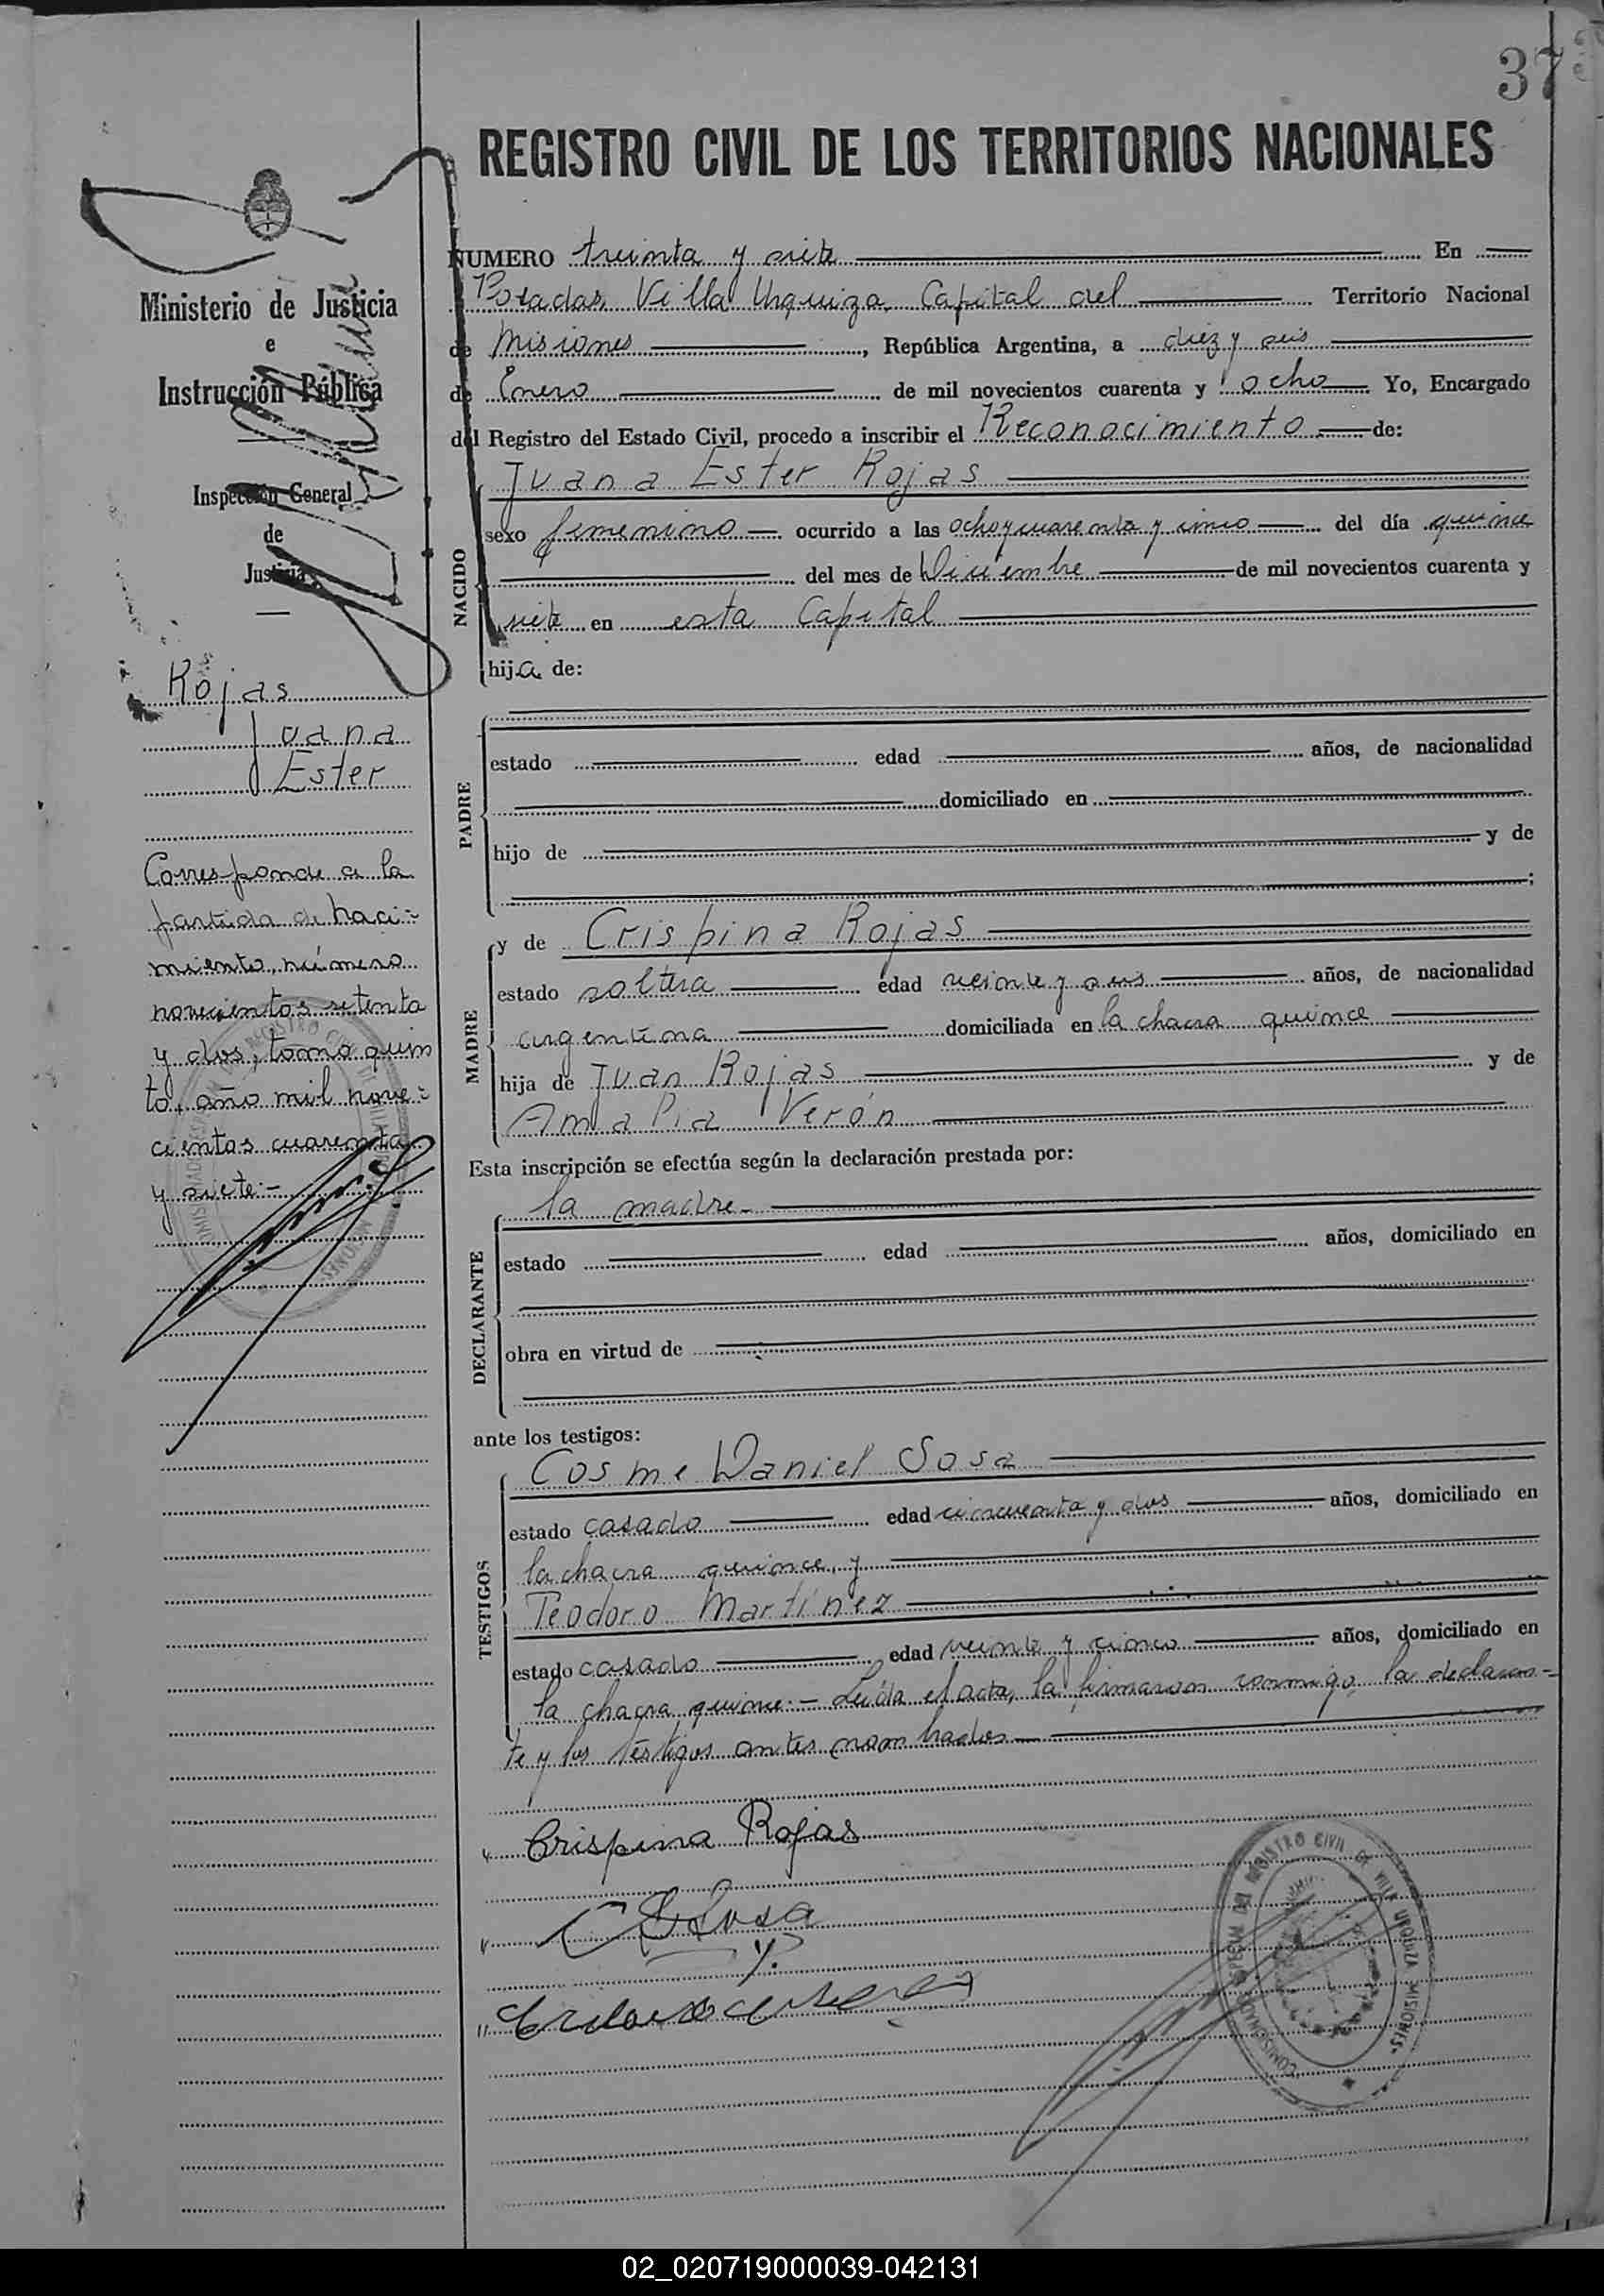 37
REGISTRO CIVIL DE LOS TERRITORIOS NACIONALES
Ministerio de Justicia
e
Instrucción Pública
Inspección General
de
Justicia
Rojas
Juana
Ester
Corresponde a la
partida de naci-
miento, número
novecientos setenta
y dos, tomo quin
to, año mil nove-
cientos cuarenta
y siete.-
NUMERO treinta y siete En
Posadas, Villa Urquiza, Capital del Territorio Nacional
de Misiones, República Argentina, a diez y seis
de Enero de mil novecientos cuarenta y ocho Yo, Encargado
del Registro del Estado Civil, procedo a inscribir el Reconocimiento de:
NACIDO
Juana Ester Rojas
sexo femenino ocurrido a las ocho y cuarenta y cinco del día quince
del mes de Diciembre de mil novecientos cuarenta y
siete en esta Capital
hija de:
PADRE
estado edad años, de nacionalidad
domiciliado en
hijo de y de
;
MADRE
y de Crispina Rojas
estado soltera edad veinte y seis años, de nacionalidad
argentina domiciliada en la chacra quince
hija de Juan Rojas y de
Amalia Verón
Esta inscripción se efectúa según la declaración prestada por:
DECLARANTE
la madre.-
estado edad años, domiciliado en
obra en virtud de
ante los testigos:
TESTIGOS
Cosme Daniel Sosa
estado casado edad cincuenta y dos años, domiciliado en
la chacra quince, y
Teodoro Martínez
estado casado edad veinte y cinco años, domiciliado en
la chacra quince.- Leída el acta, la firmaron conmigo, la declaran-
te y los testigos antes nombrados
Crispina Rojas
C D Sosa
REGISTRO CIVIL DE VILLA URQUIZA MISIONES
02_020719000039-042131